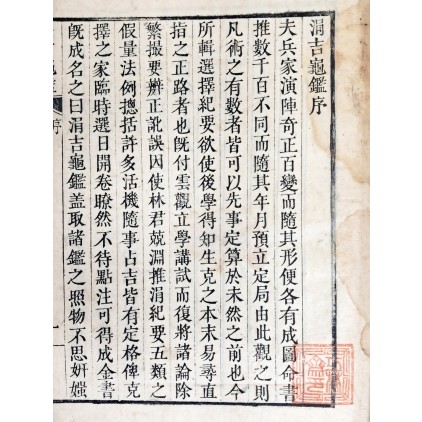 涓吉龜鑑序
夫兵家演陣奇正百變而隨其形便各有成圖命書
推數千百不同而隨其年月預立定局由此觀之則
凡術之有數者皆可以先事定算於未然之前也今
所輯選擇紀要欲使後學得知生克之本末易尋直
指之正路者也旣付雲觀立學講試而復將諸論除
繁撮要辨正訛誤因使林君兢淵推涓紀要五類之
假量法例摠括許多活機隨事占吉皆有定格俾克
擇之家臨時選日開卷瞭然不待點注可得成金書
旣成名之曰涓吉龜鑑盖取諸鑑之照物不思妍媸